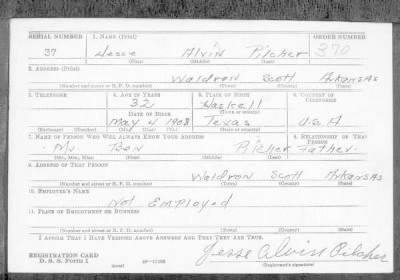 SERIAL NUMBER 1. NAME (Print) ORDER NUMBER
37 Jesse Alvin Pilcher 370
(First) (Middle) (Last)
2. ADDRESS (Print)
Waldron Scott Arkansas
(Number and street or R. F. D. number) (Town) (County) (State)
3. TELEPHONE 4. AGE IN YEARS 5. PLACE OF BIRTH 6. COUNTRY OF CITIZENSHIP
32 Haskell
DATE OF BIRTH (Town or county)
May 4 1908 Texas U.S.A
(Exchange) (Number) (Mo.) (Day) (Yr.) (State or country)
7. NAME OF PERSON WHO WILL ALWAYS KNOW YOUR ADDRESS 8. RELATIONSHIP OF THAT PERSON
Mr Ben Pilcher Father
(Mr., Mrs., Miss) (First) (Middle) (Last)
9. ADDRESS OF THAT PERSON
Waldron Scott Arkansas
(Number and street or R. F. D. number) (Town) (County) (State)
10. EMPLOYER'S NAME
Not Employed
11. PLACE OF EMPLOYMENT OR BUSINESS
(Number and street or R. F. D. number) (Town) (County) (State)
I AFFIRM THAT I HAVE VERIFIED ABOVE ANSWERS AND THAT THEY ARE TRUE.
REGISTRATION CARD Jesse Alvin Pilcher
D. S. S. Form 1 (over) (Registrant's signature)